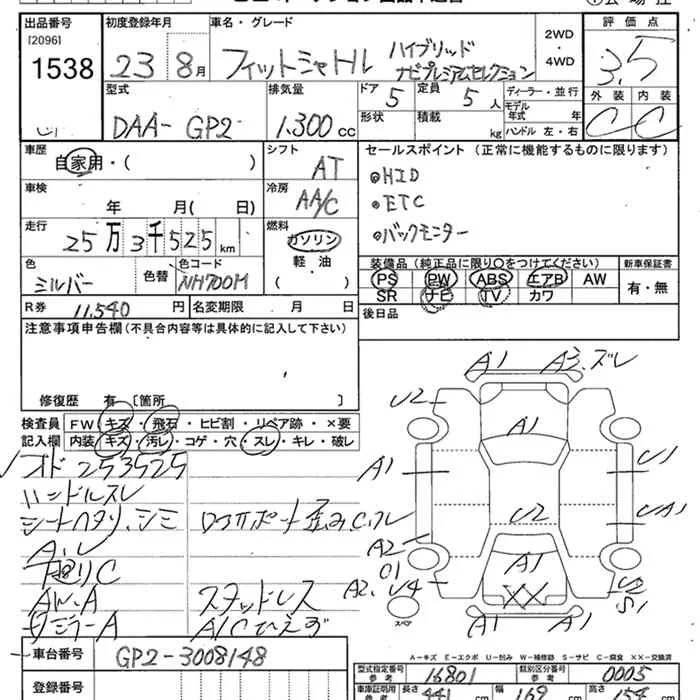 出品番号
[2096]
1538
初度登録年月
23 8月
車名・グレード
フィットシャトル ハイブリッド
ナビプレミアムセレクション
2WD
・
4WD
評価点
3.5
外装 内装
C C
型式
DAA- GP2
排気量
1.300 cc
ドア 5
定員 5人
形状
積載 kg
ディーラー・並行
モデル年式 年
ハンドル 左・右
車歴
自家用・( )
シフト
AT
車検
年 月( 日)
冷房
AA/C
走行
25万3千525km
燃料
ガソリン
軽・油
( )
色
シルバー
色替
色コード
NH700M
R券 11,540円
名変期限 月 日
セールスポイント (正常に機能するものに限ります)
HID
ETC
バックモニター
装備品(純正品に限り○をつけてください)
PS PW ABS エアB AW
SR ナビ TV カワ
新車保証書
有・無
後日品
注意事項申告欄(不具合内容等は具体的に記入して下さい)
修復歴 有〔箇所 〕
検査員
記入欄
FW キズ・飛石・ヒビ割・リペア跡・×要
内装 キズ・汚レ・コゲ・穴・スレ・キレ・破レ
オド 253525
ハンドルスレ
シートヘタリ、シミ
下廻りC
AW.A
スタッドレス
A/Cひえず
A1
A3.ズレ
U2
A1
A1
U1
U2
UA1
A2
A1
XX
A2. U4
S1
A1
A1
スペア
A-キズ E-エクボ U-凹み W-補修跡 S-サビ C-腐食 XX-交換済
車台番号
GP2-3008148
登録番号
型式指定番号
参考
16801
類別区分番号
参考
0005
車庫証明用
参考
長さ 441 cm
幅 169 cm
高さ 154 cm